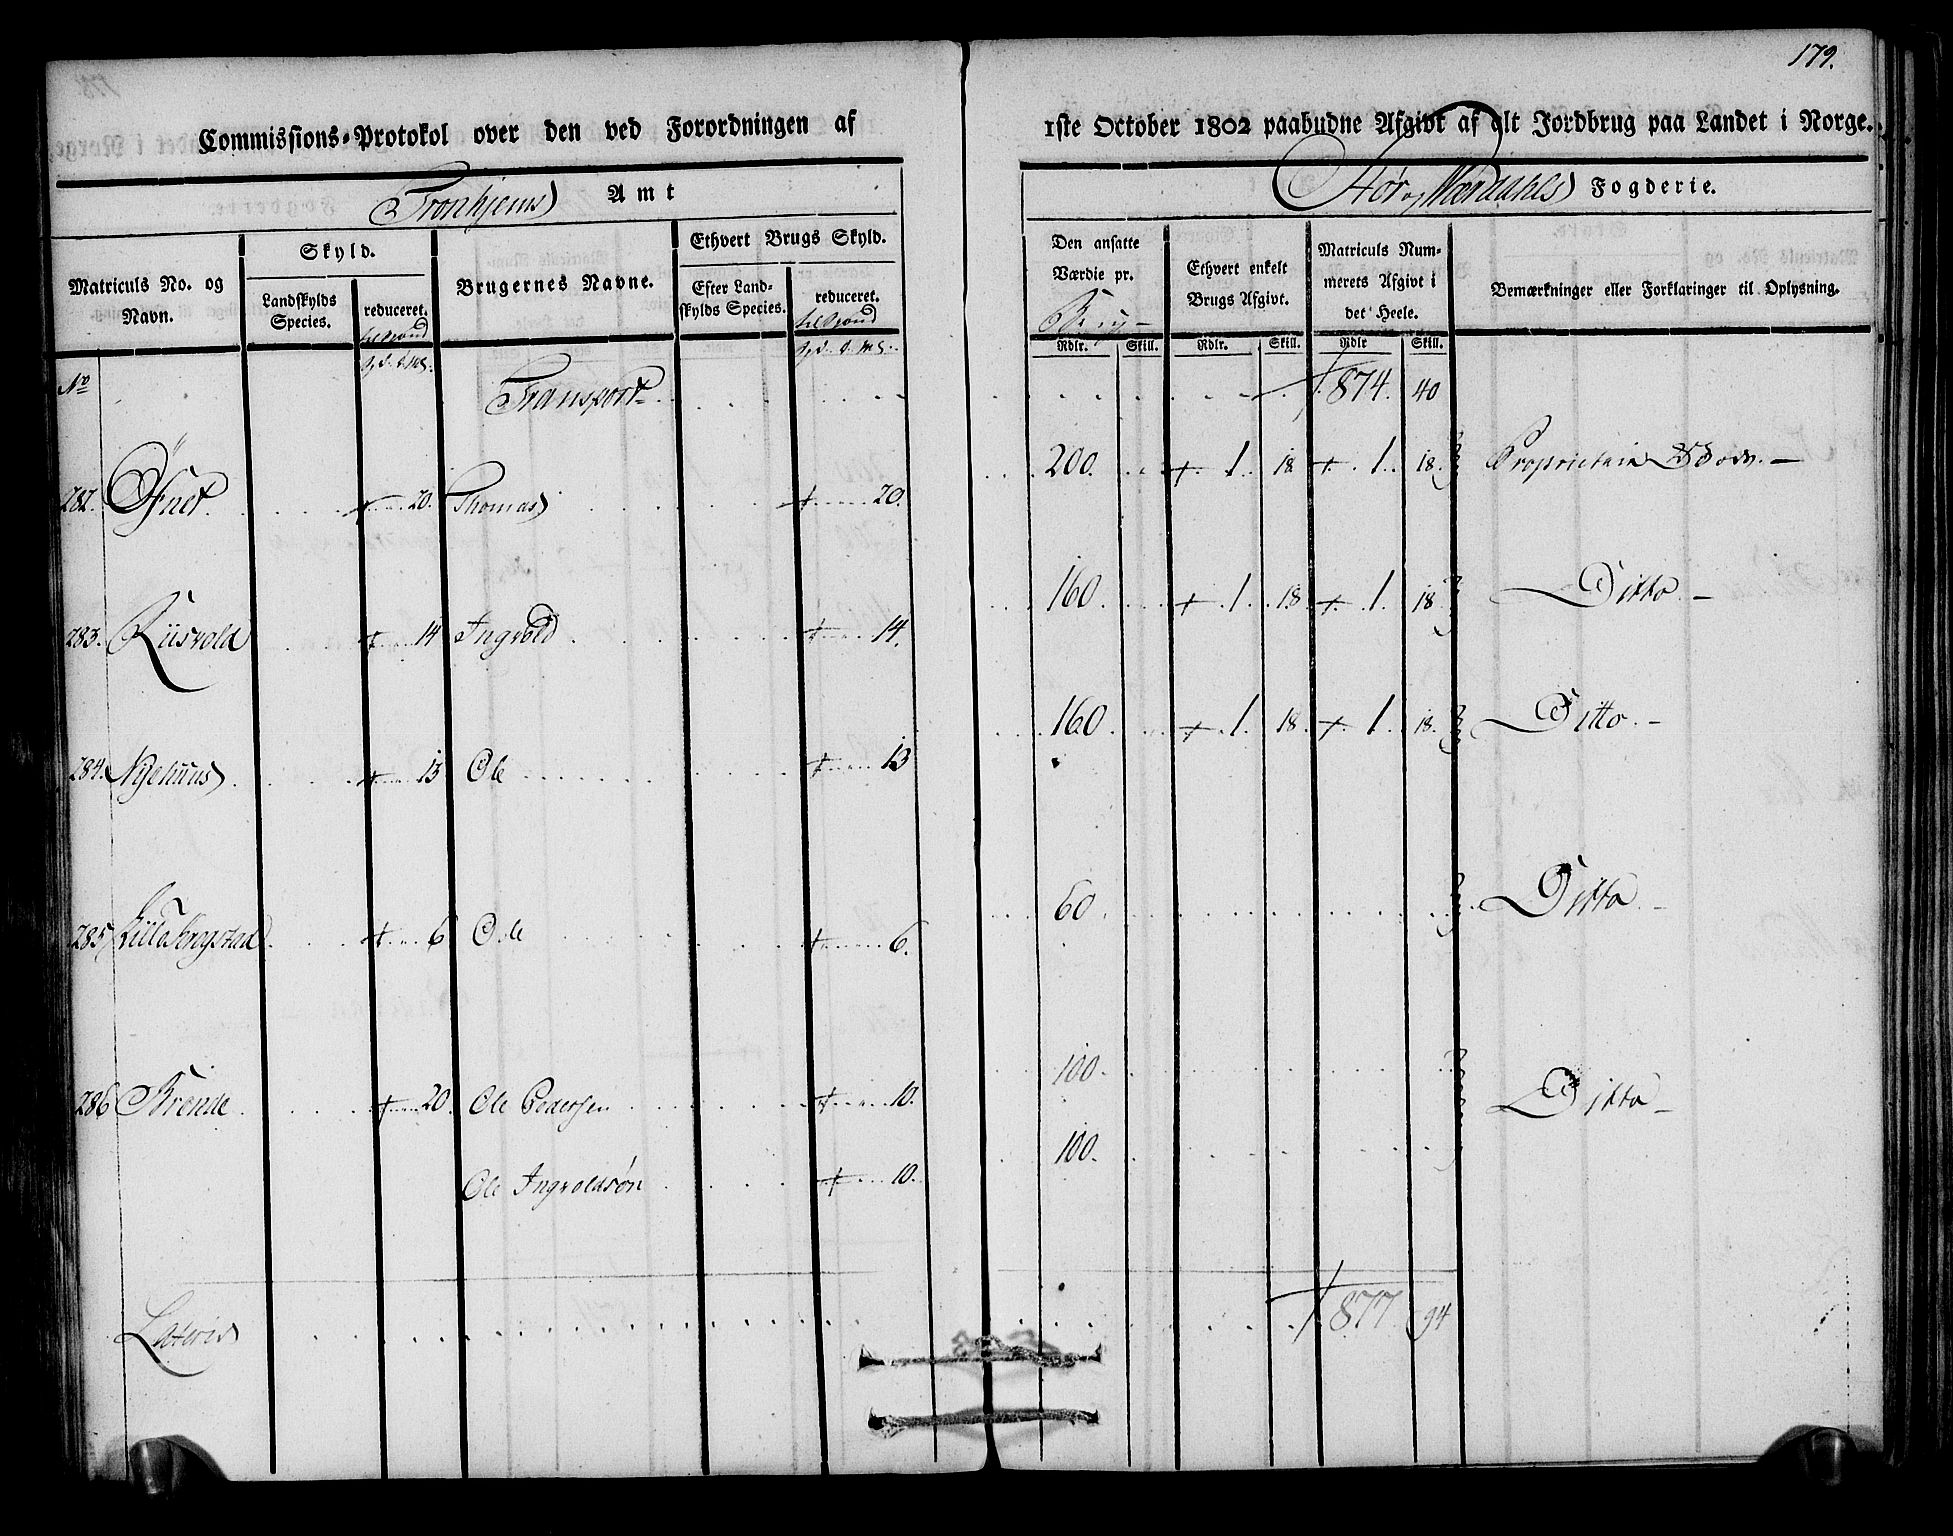 179.
Commissions-Protokol over den ved Forordningen af 1ste October 1802 paabudne Afgivt af alt Jordbrug paa Landet i Norge.
Tronhjems Amt
Stør og Værdahls Fogderie.
Matriculs No. og Navn.
Skyld.
Landskylds Species.
reduceret.
Brugernes Navne.
Ethvert Brugs Skyld.
Efter Landskylds Species.
reduceret.
Den ansatte Værdie pr. Brug
Rdlr. Skill.
Ethvert enkelt Brugs Afgivt.
Rdlr. Skill.
Matriculs Nummerets Afgivt i det Heele.
Rdlr Skill.
Bemærkninger eller Forklaringer til Oplysning.
No
Transport 874. 40
282. 20. Thomas 20. 200. 1. 18 1. 18.
283. 14 Ingvold 14. 160. 1. 18. 1. 18 Ditto.
284. Nyehuus 13 Ole 13 160. 1. 18. 1. 18. Ditto.
285 6 Ole 6. 60. Ditto.
286 20. Ole Pedersen 10. 100. Ditto
Ole Ingvoldsøn 10. 100.
Lateris 877. 94